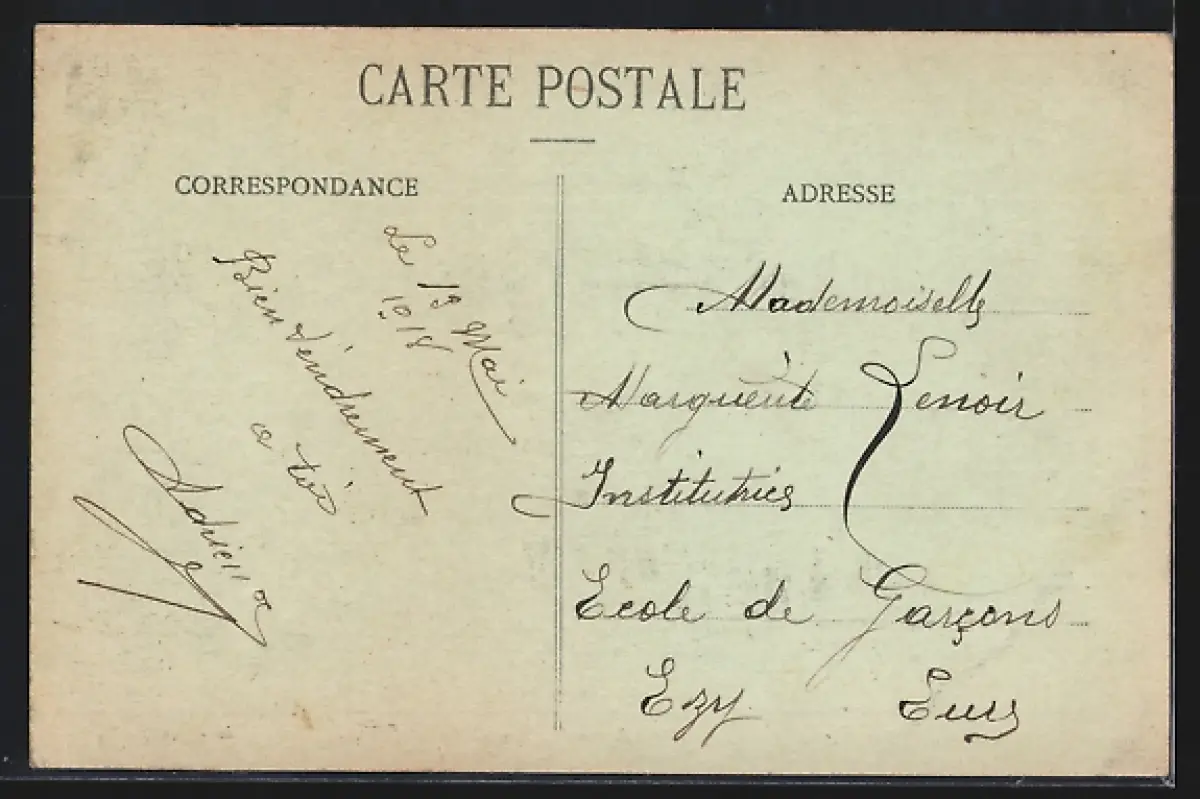 CARTE POSTALE
CORRESPONDANCE
Le 19 Mai
1918
Bien tendrement
a toi
ADRESSE
Mademoiselle
Marguerite Lenoir
Institutrice
Ecole de Garçons
Ezy Eure